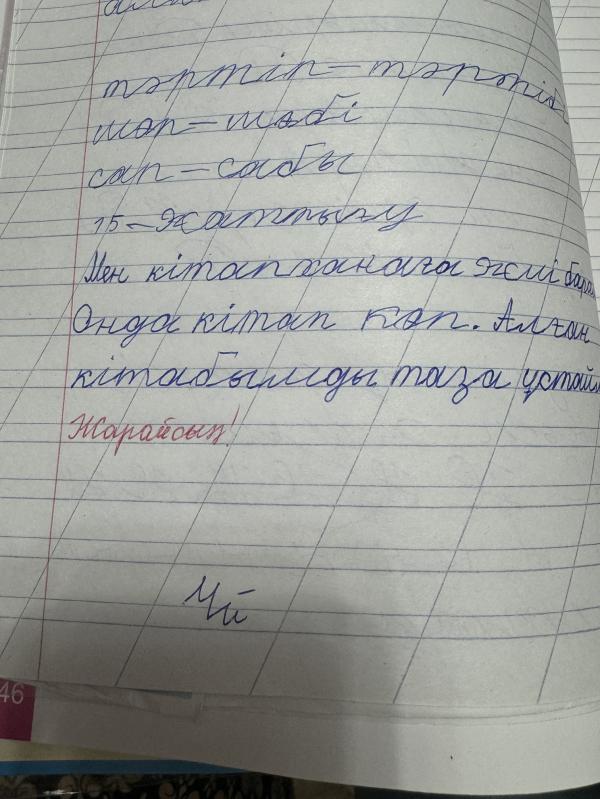 тәртіп – тәртібі
шөп – шөбі
сап – сабы
15 – жаттығу
Мен кітапханаға жиі бара
Онда кітап көп. Алған
кітабымды таза ұстайм
Жарайсың!
Үй
46